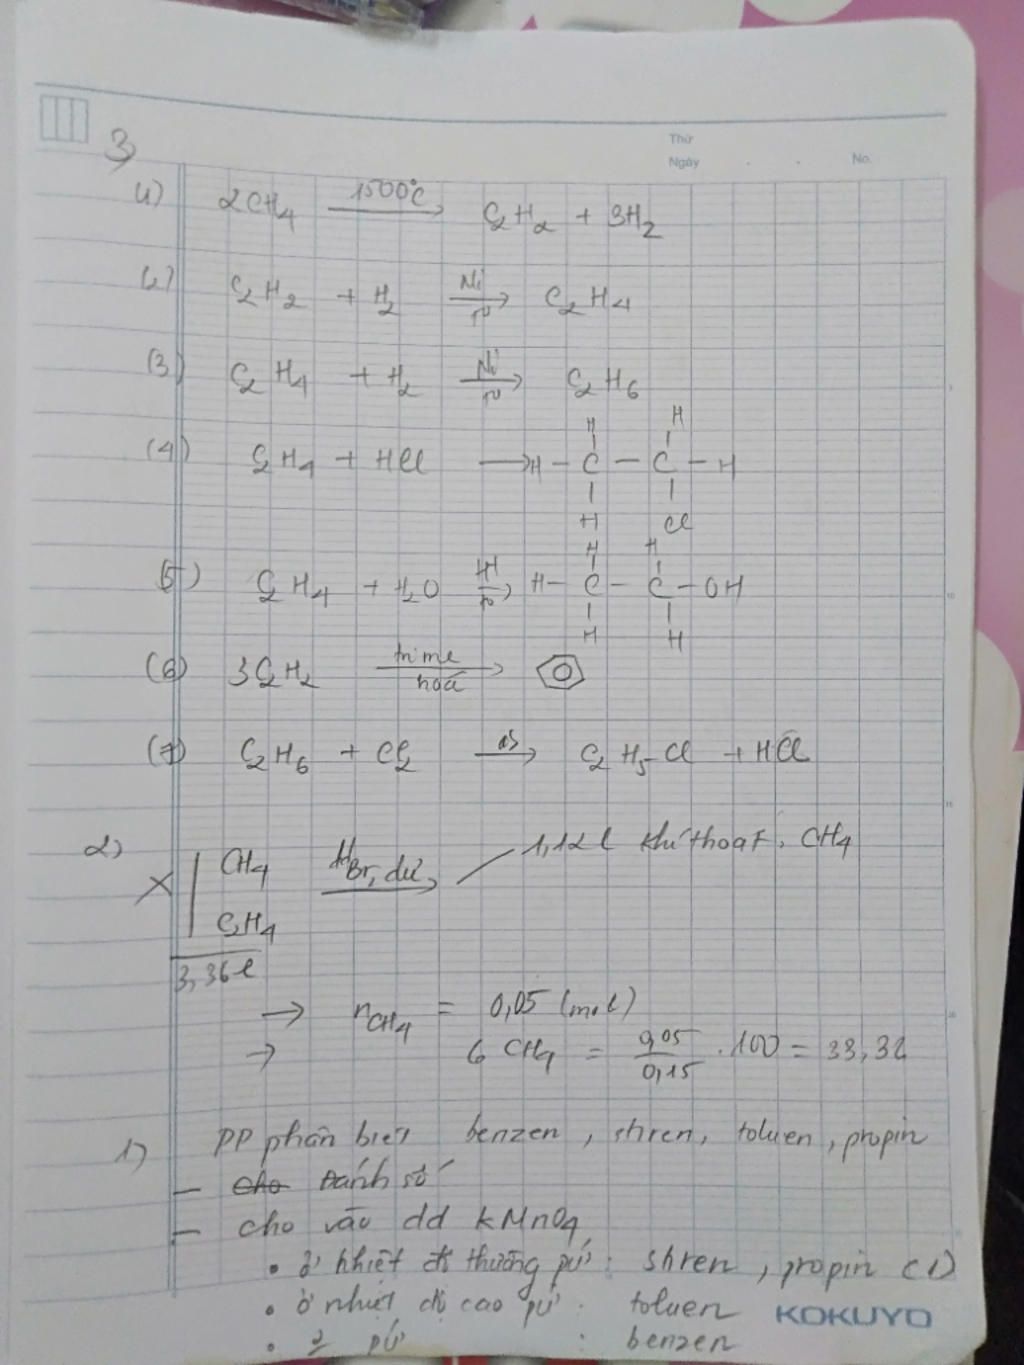 Thứ
Ngày . . No.
3)
(1) 2CH4 1500°C → C2H2 + 3H2
(2) C2H2 + H2 Ni t° → C2H4
(3) C2H4 + H2 Ni t° → C2H6
H H
(4) C2H4 + HCl → H - C - C - H
H Cl
H H
(5) C2H4 + H2O H+ t° → H - C - C - OH
H H
(6) 3C2H2 trime hoá →
(7) C2H6 + Cl2 as → C2H5-Cl + HCl
2) X CH4 Br2 dư → 1,12l khí thoát : CH4
C2H4
3,36l
→ nCH4 = 0,05 (mol)
→ % CH4 = 0,05 / 0,15 . 100 = 33,3%
1) PP phân biệt benzen , stiren, toluen , propin
- Cho Đánh số
- cho vào dd KMnO4
• ở nhiệt độ thường pứ : stiren , propin (1)
• ở nhiệt độ cao pứ : toluen
• pứ : benzen
KOKUYO